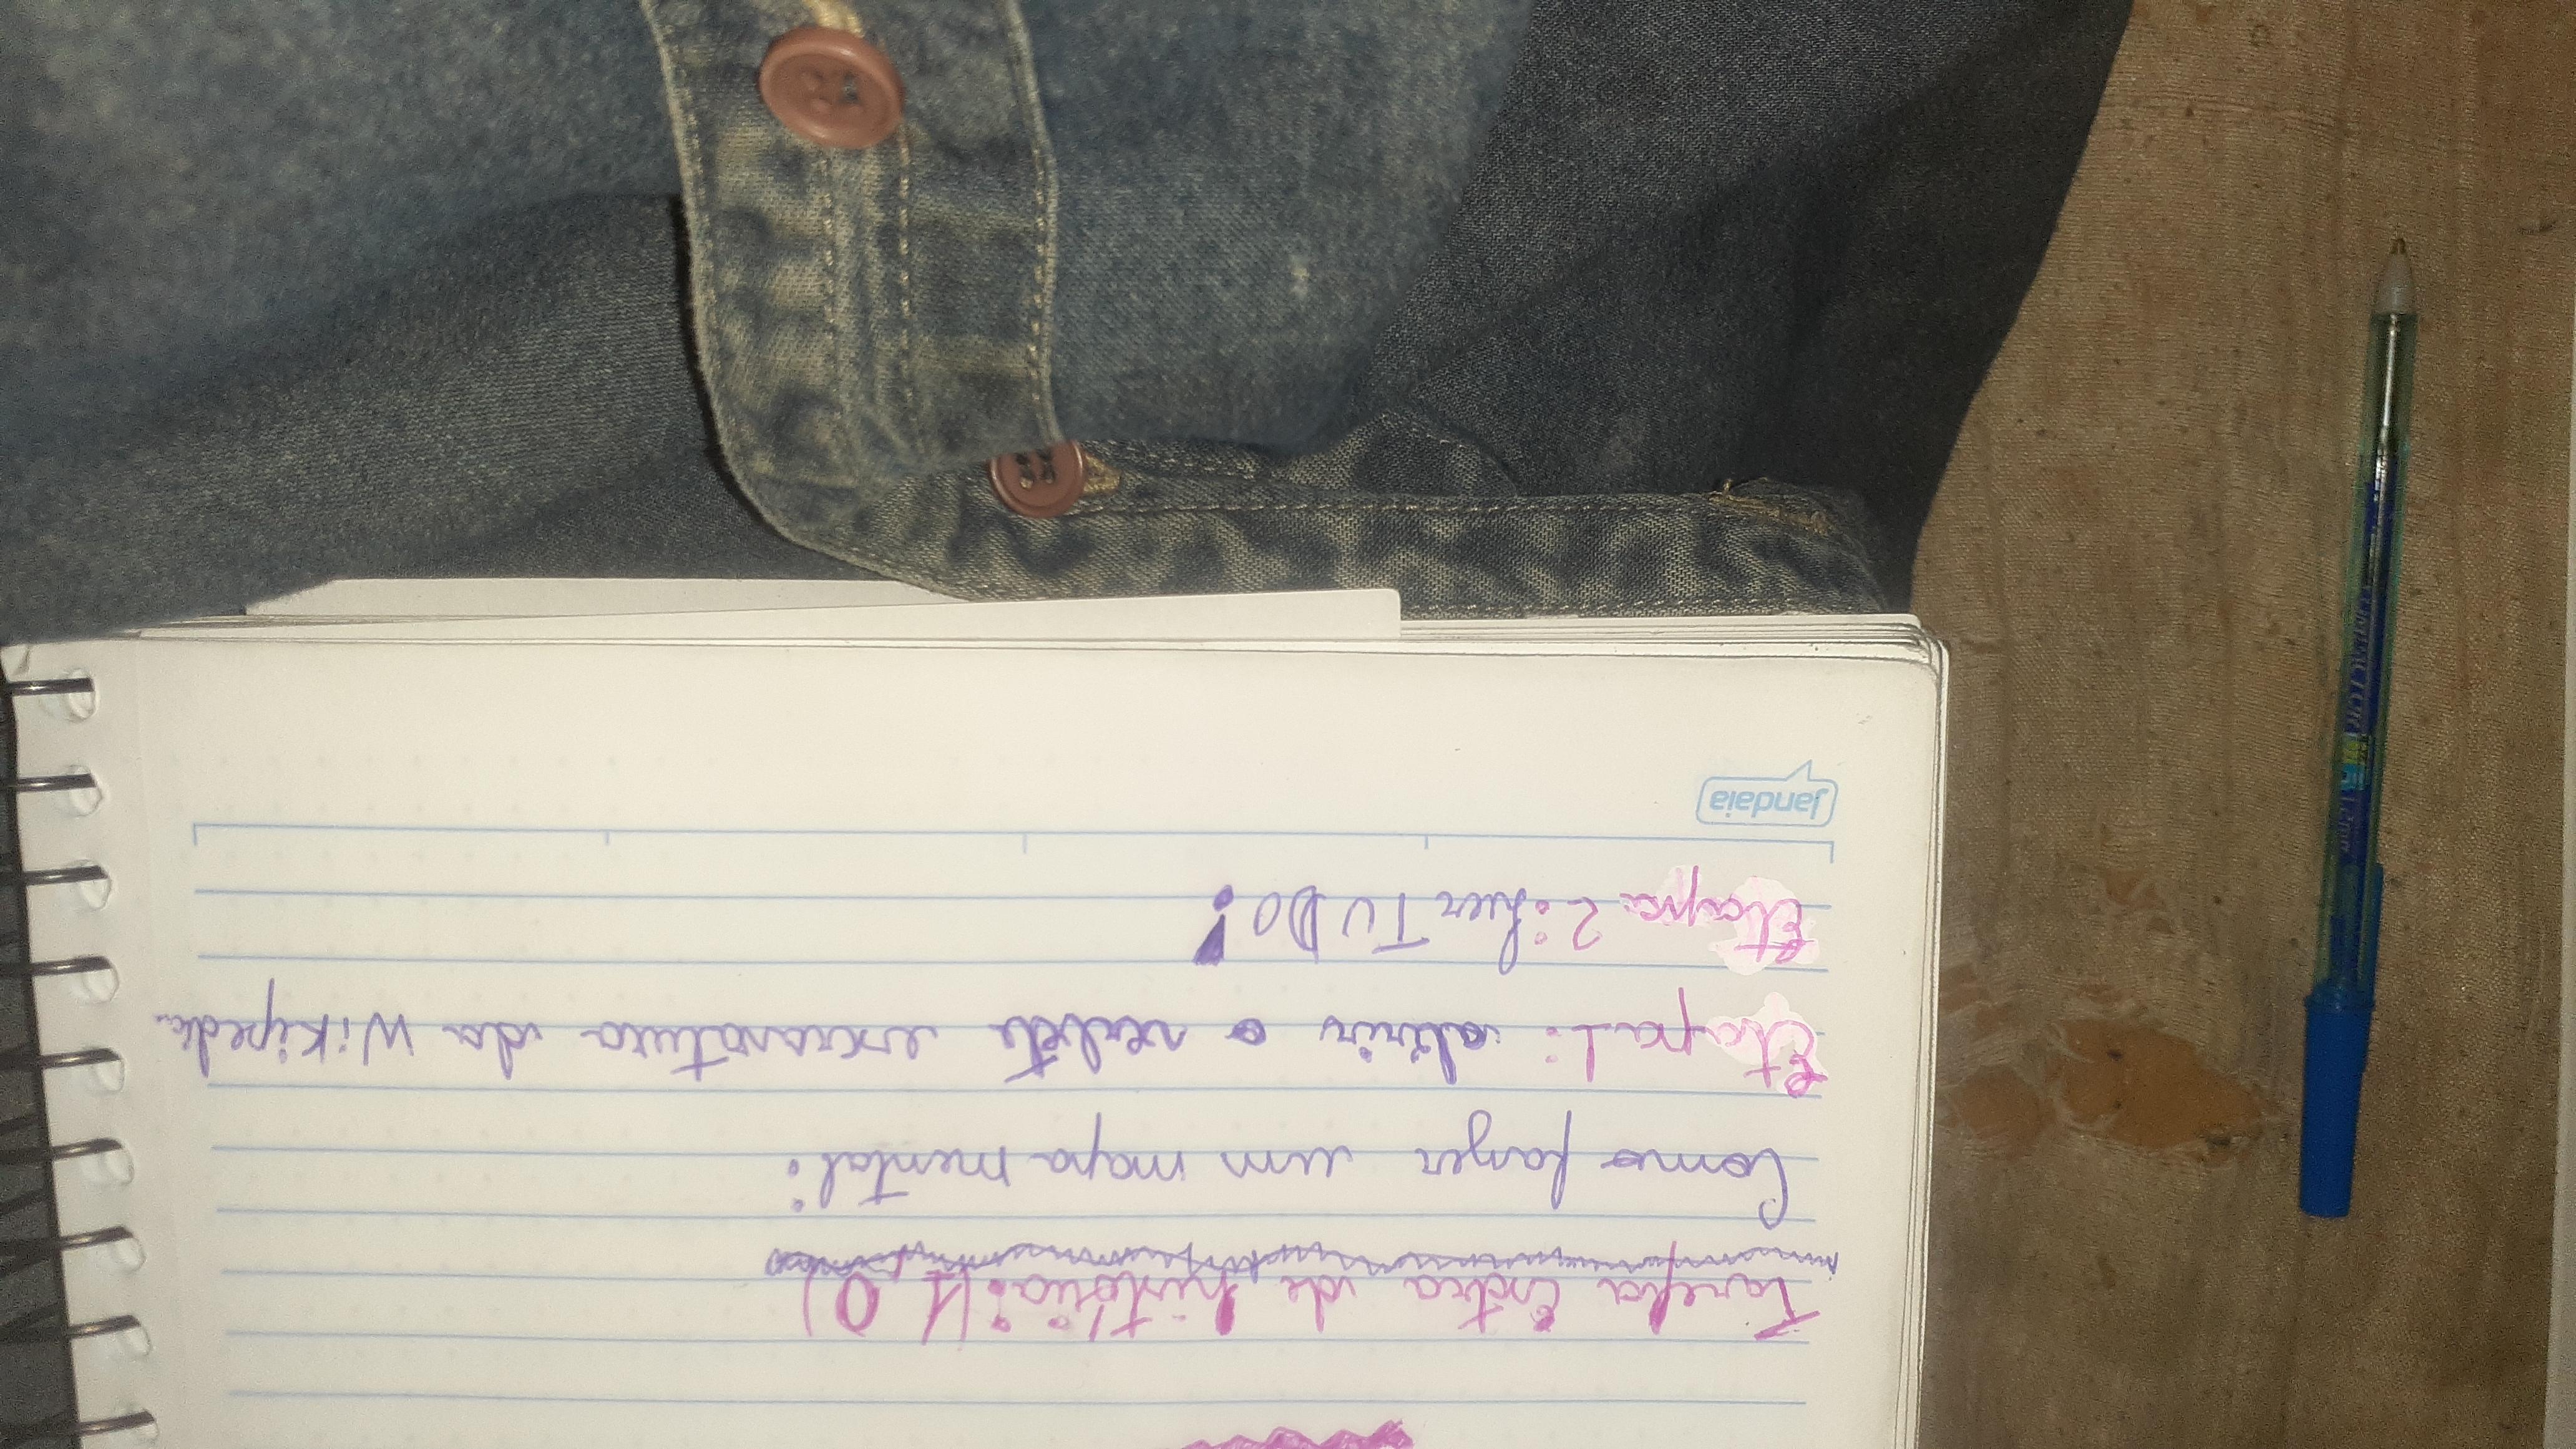 Tarefa Extra de história: (1,0)
Como fazer um mapa mental:
Etapa 1: abrir o verbete escravatura da Wikipedia.
Etapa 2: ler TUDO!
jandaia